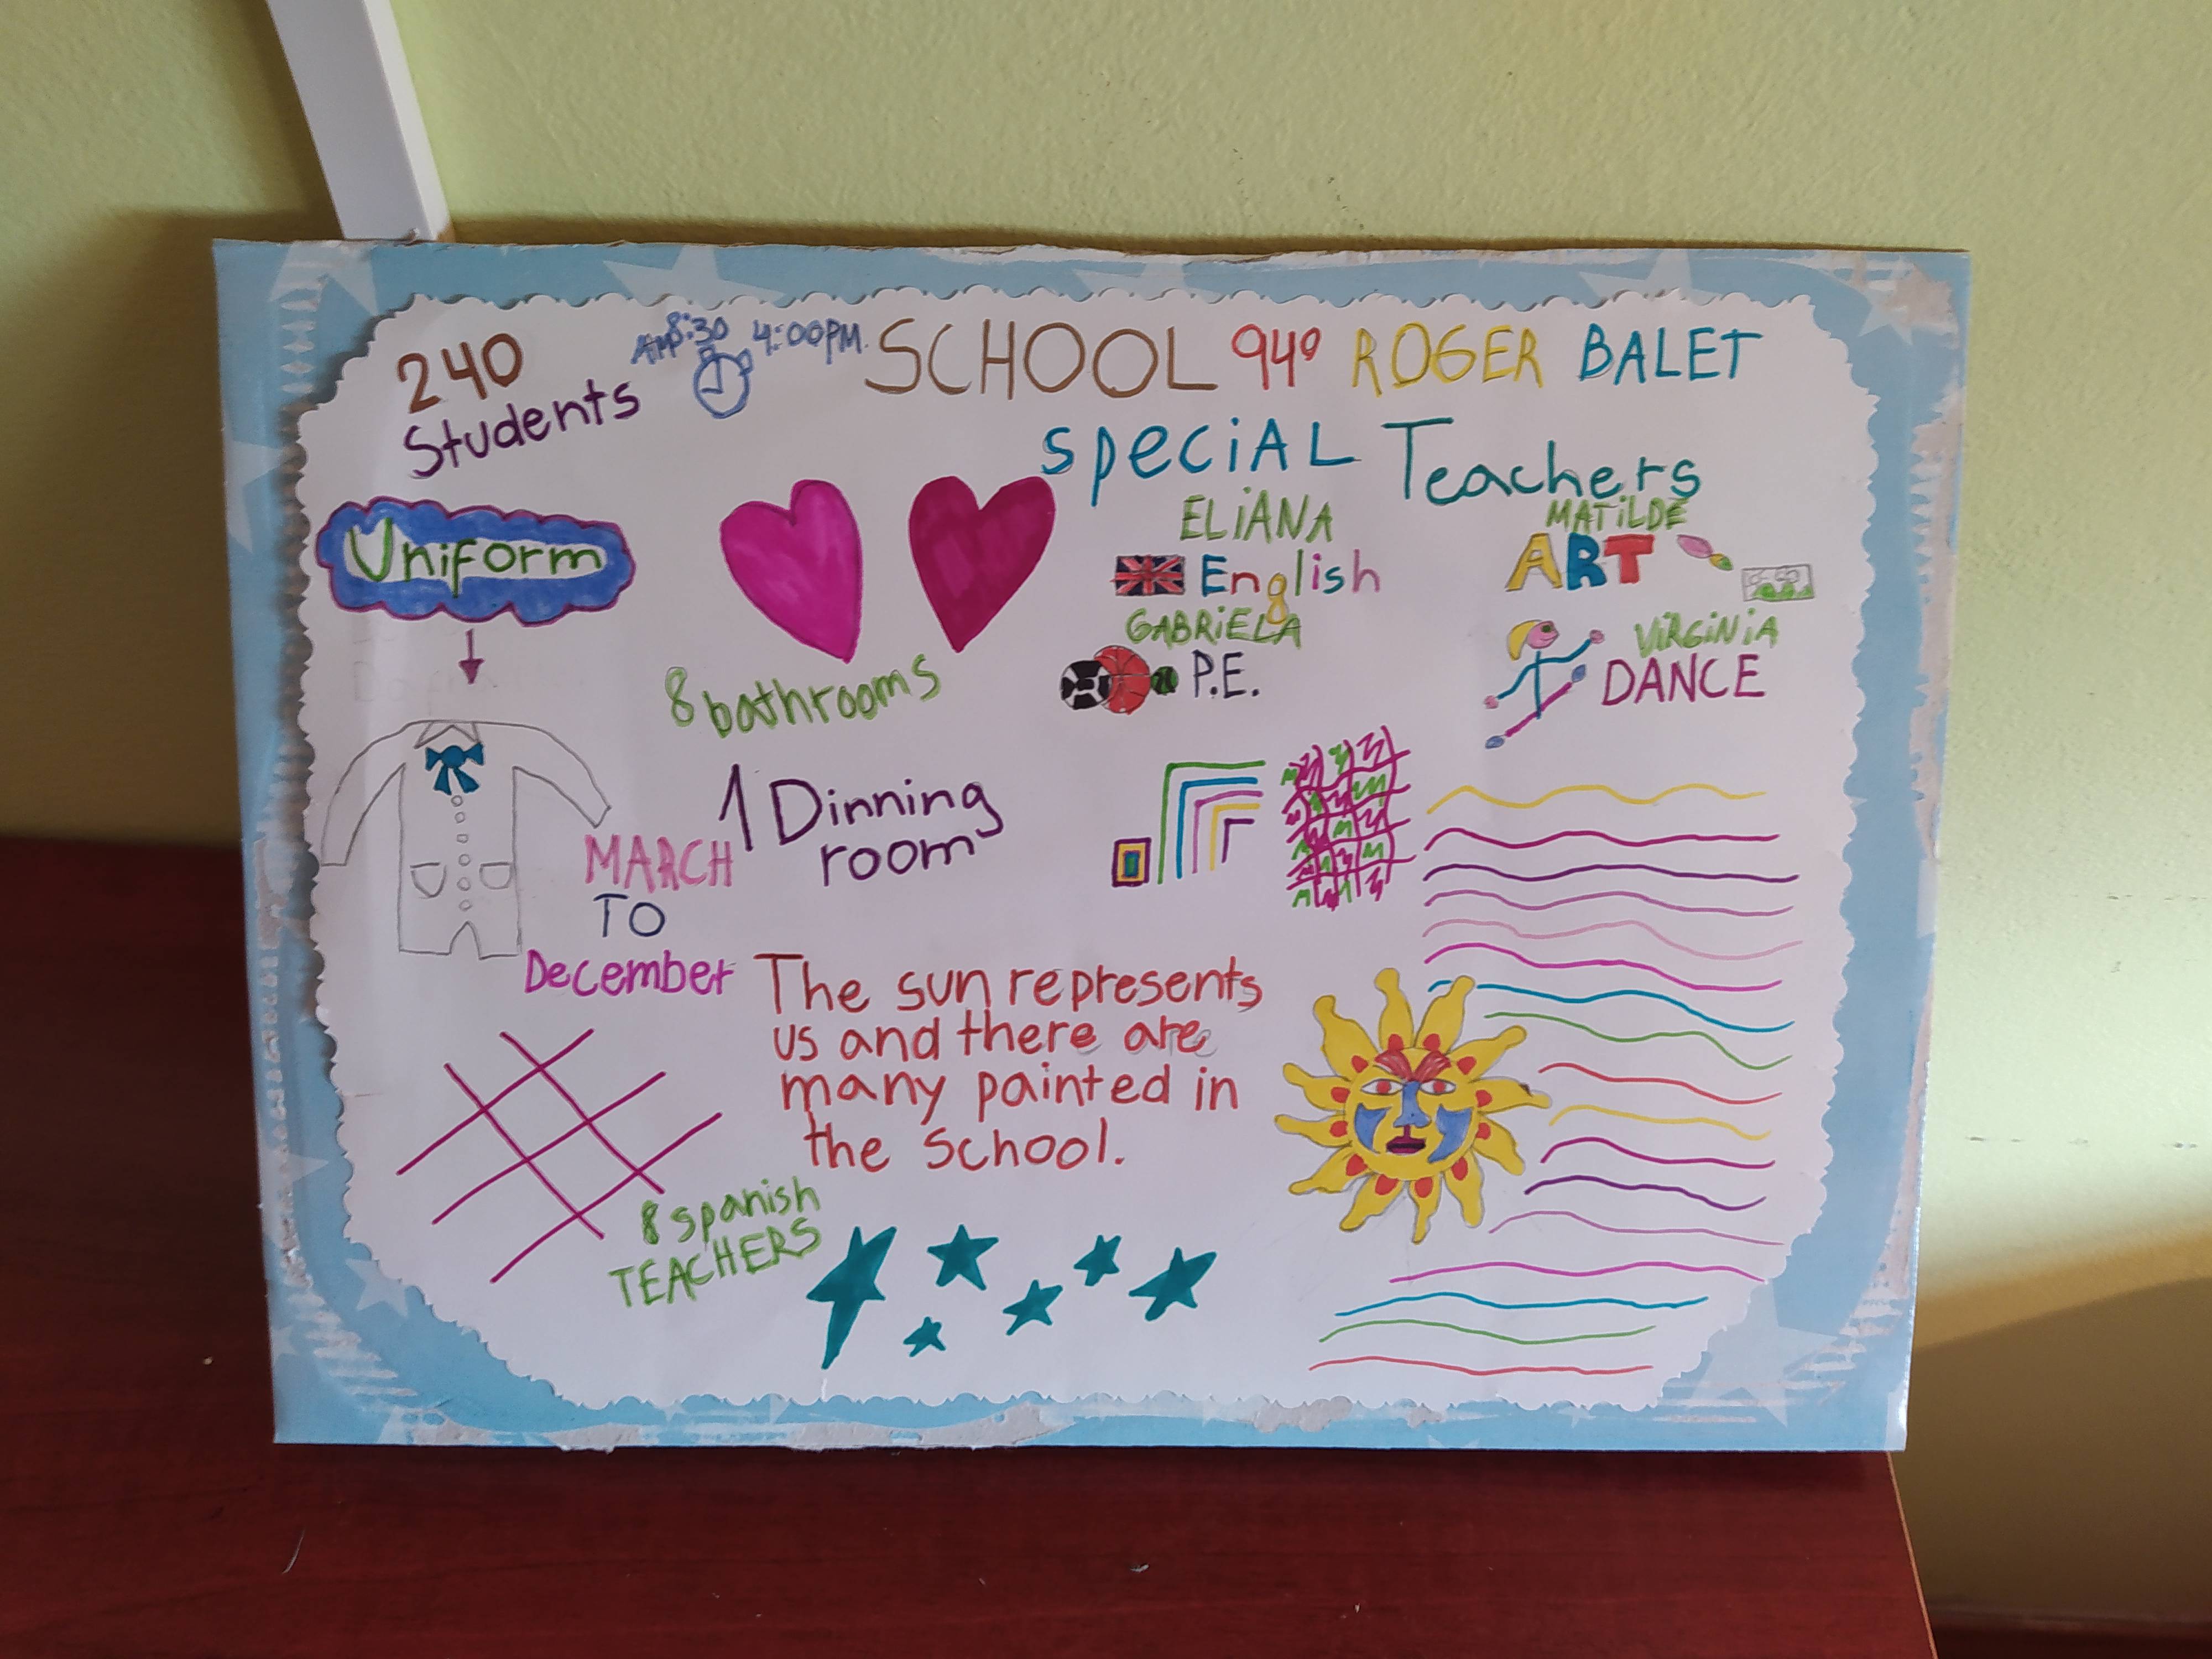 240
Students
AM 8:30 4:00PM.
SCHOOL 94º ROGER BALET
SpeciAL Teachers
Uniform
ELiANA
English
GABRiELA
P.E.
MATiLDE
ART
ViRGiNiA
DANCE
8 bathrooms
1 Dinning
room
MARCH
TO
December
The sun represents
us and there are
many painted in
the school.
8 spanish
TEACHERS